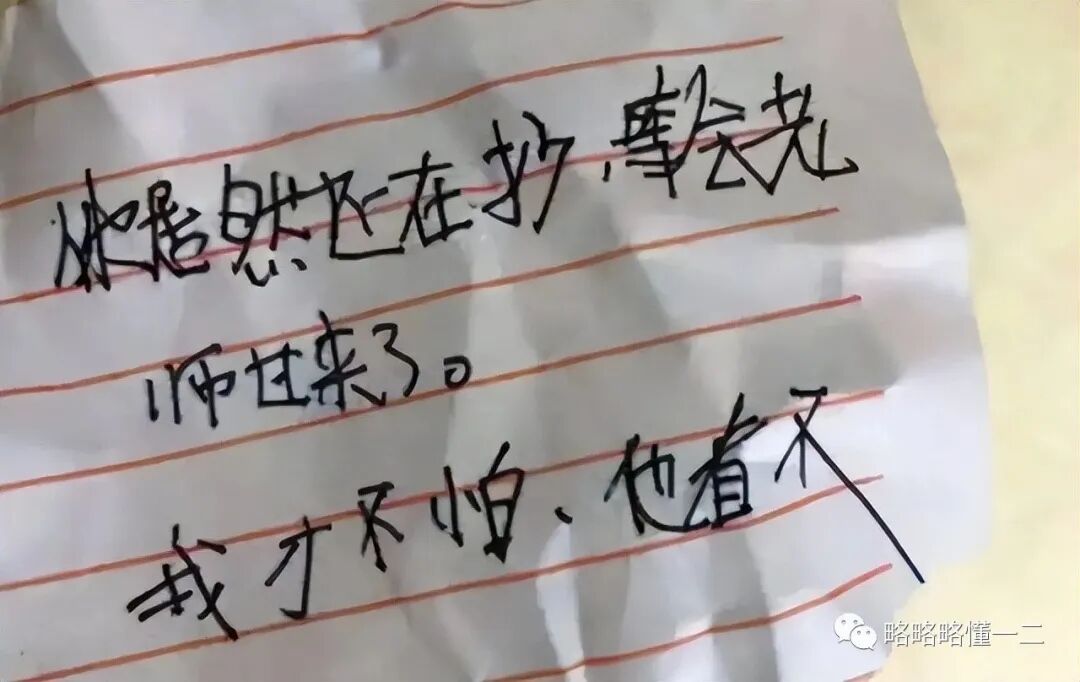 你居然还在抄、等会老
师过来了。
我才不怕、他看不
略略略懂一二